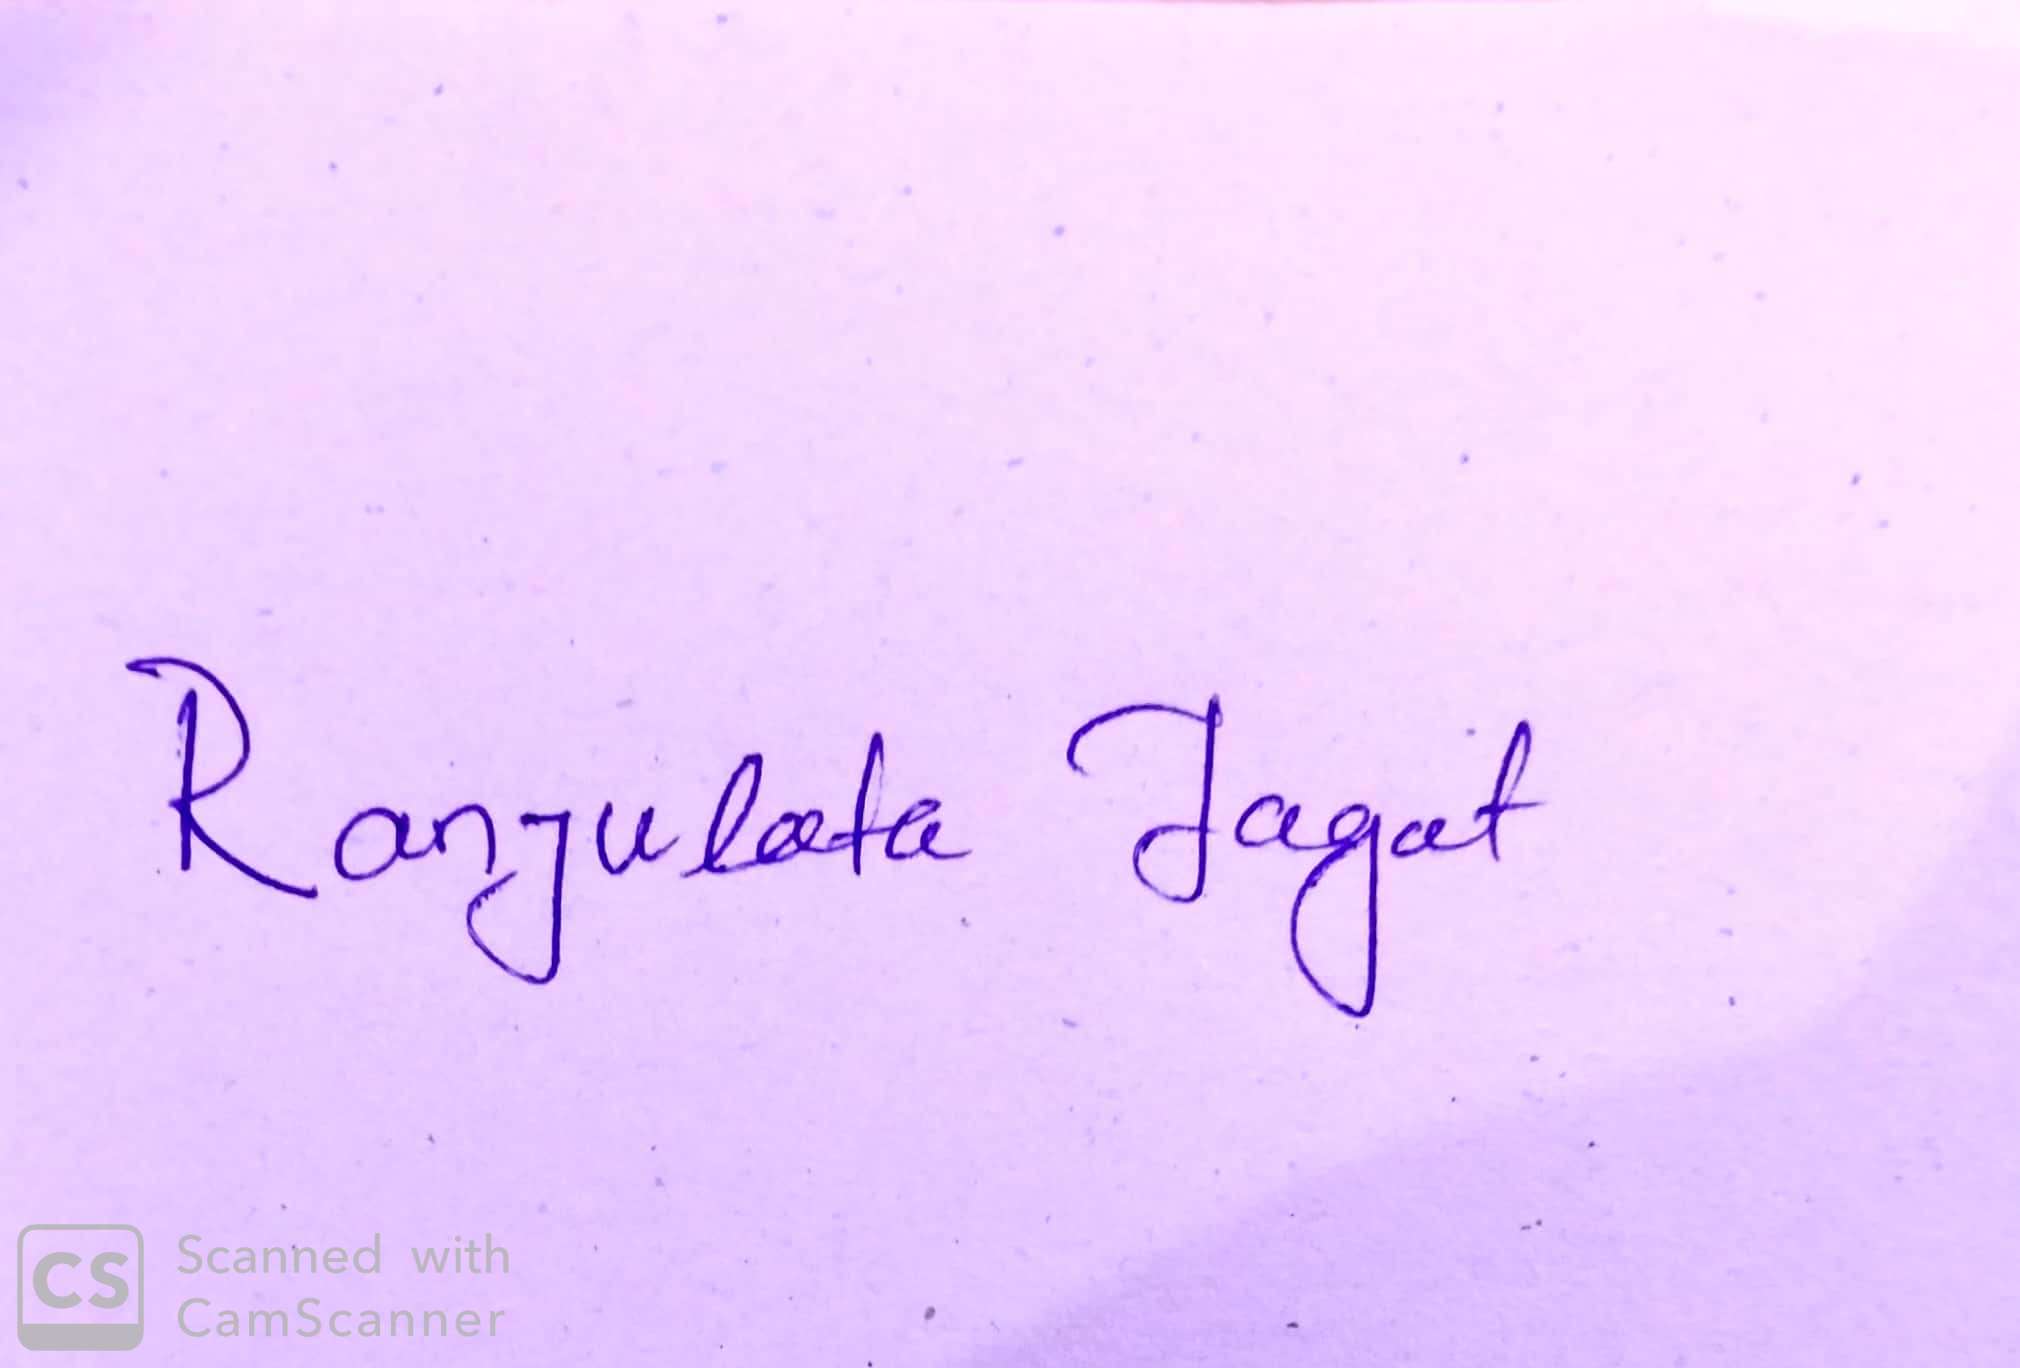 Ranjulata Jagat
CS Scanned with
CamScanner